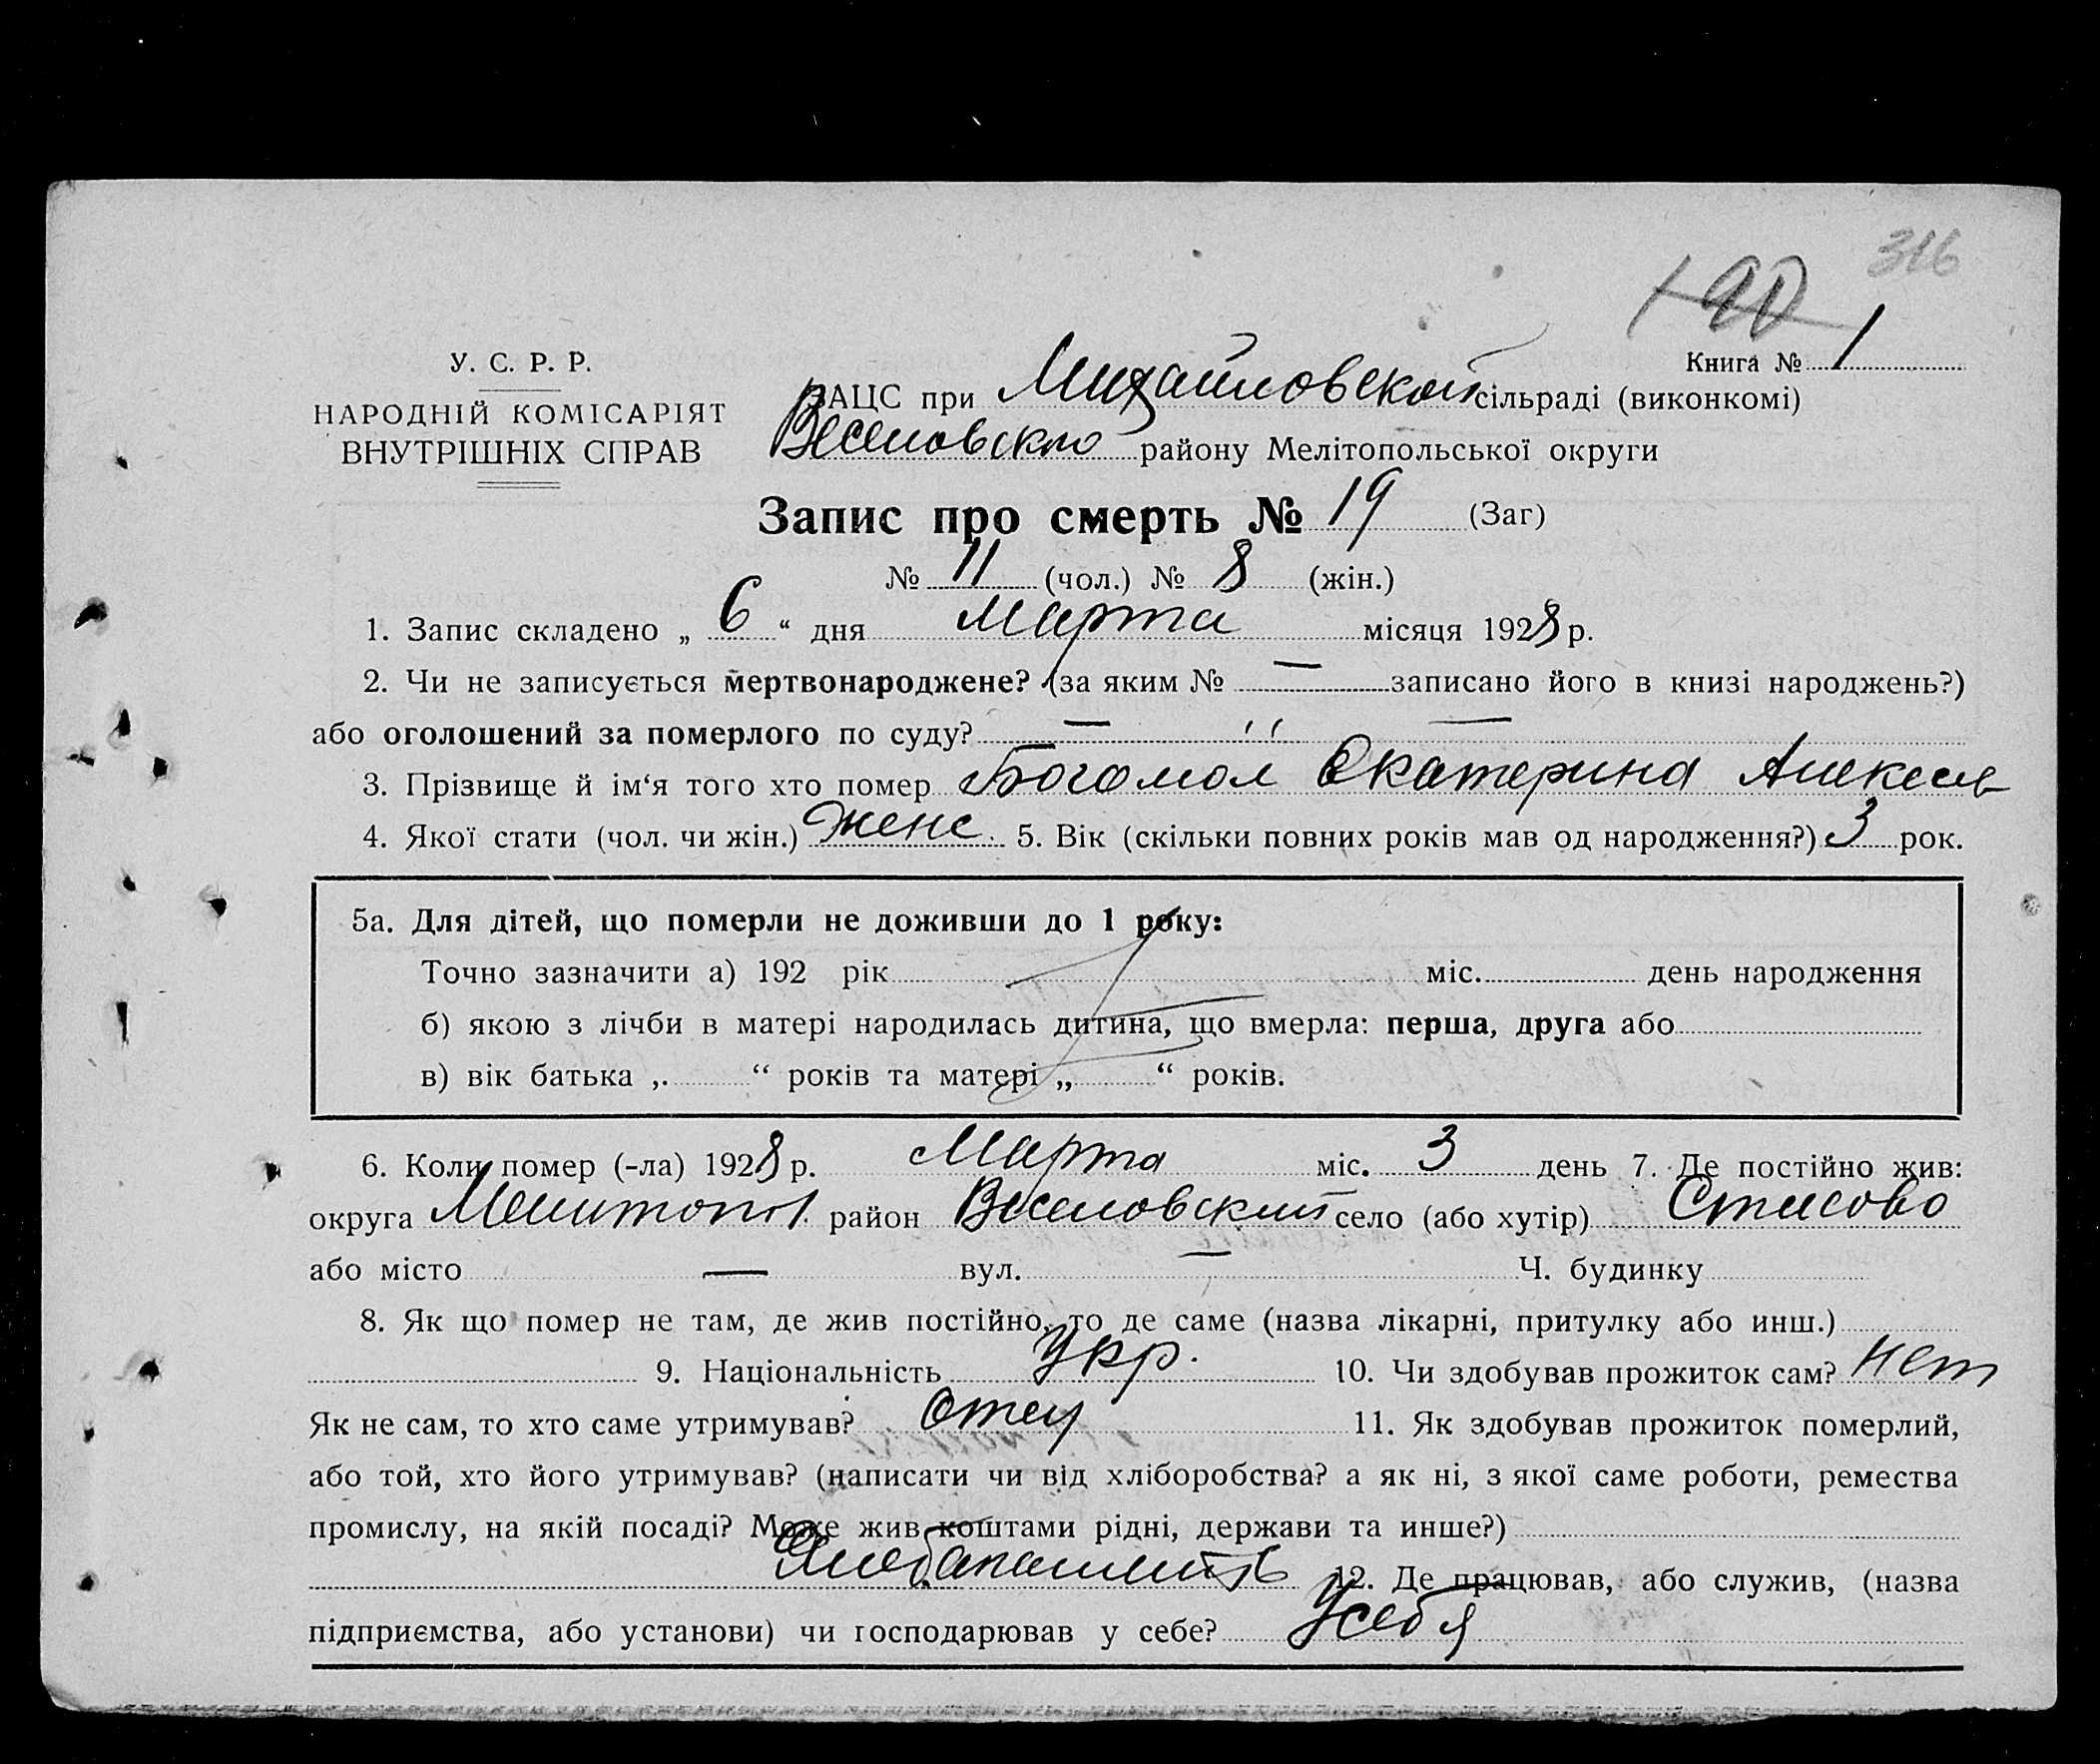 316
190
У. С. Р. Р.
Книга № 1
НАРОДНІЙ КОМІСАРІЯТ
ВНУТРІШНІХ СПРАВ
ЗАЦС при Михайловской сільраді (виконкомі)
Веселовского району Мелітопольської округи
Запис про смерть № 19 (Заг)
№ 11 (чол.) № 8 (жін.)
1. Запис складено „ 6 “ дня Марта місяця 1928 р.
2. Чи не записується мертвонароджене? (за яким № — записано його в книзі народжень?)
або оголошений за померлого по суду? — —
3. Прізвище й ім‘я того хто помер Богомол Екатерина Алексеев
4. Якої стати (чол. чи жін.) Женс. 5. Вік (скільки повних років мав од народження?) 3 рок.
5а. Для дітей, що померли не доживши до 1 року:
Точно зазначити а) 192 рік міс. день народження
б) якою з лічби в матері народилась дитина, що вмерла: перша, друга або
в) вік батька „ “ років та матері „ “ років.
6. Коли помер (-ла) 1928 р. Марта міс. 3 день 7. Де постійно жив:
округа Мелитопол. район Веселовский село (або хутір)
або місто — вул. — Ч. будинку
8. Як що помер не там, де жив постійно, то де саме (назва лікарні, притулку або инш.)
9. Національність Укр. 10. Чи здобував прожиток сам? Нет
Як не сам, то хто саме утримував? Отец 11. Як здобував прожиток померлий,
або той, хто його утримував? (написати чи від хліборобства? а як ні, з якої саме роботи, ремества
промислу, на якій посаді? Може жив коштами рідні, держави та инше?)
12. Де працював, або служив, (назва
підприємства, або установи) чи господарював у себе? У себя